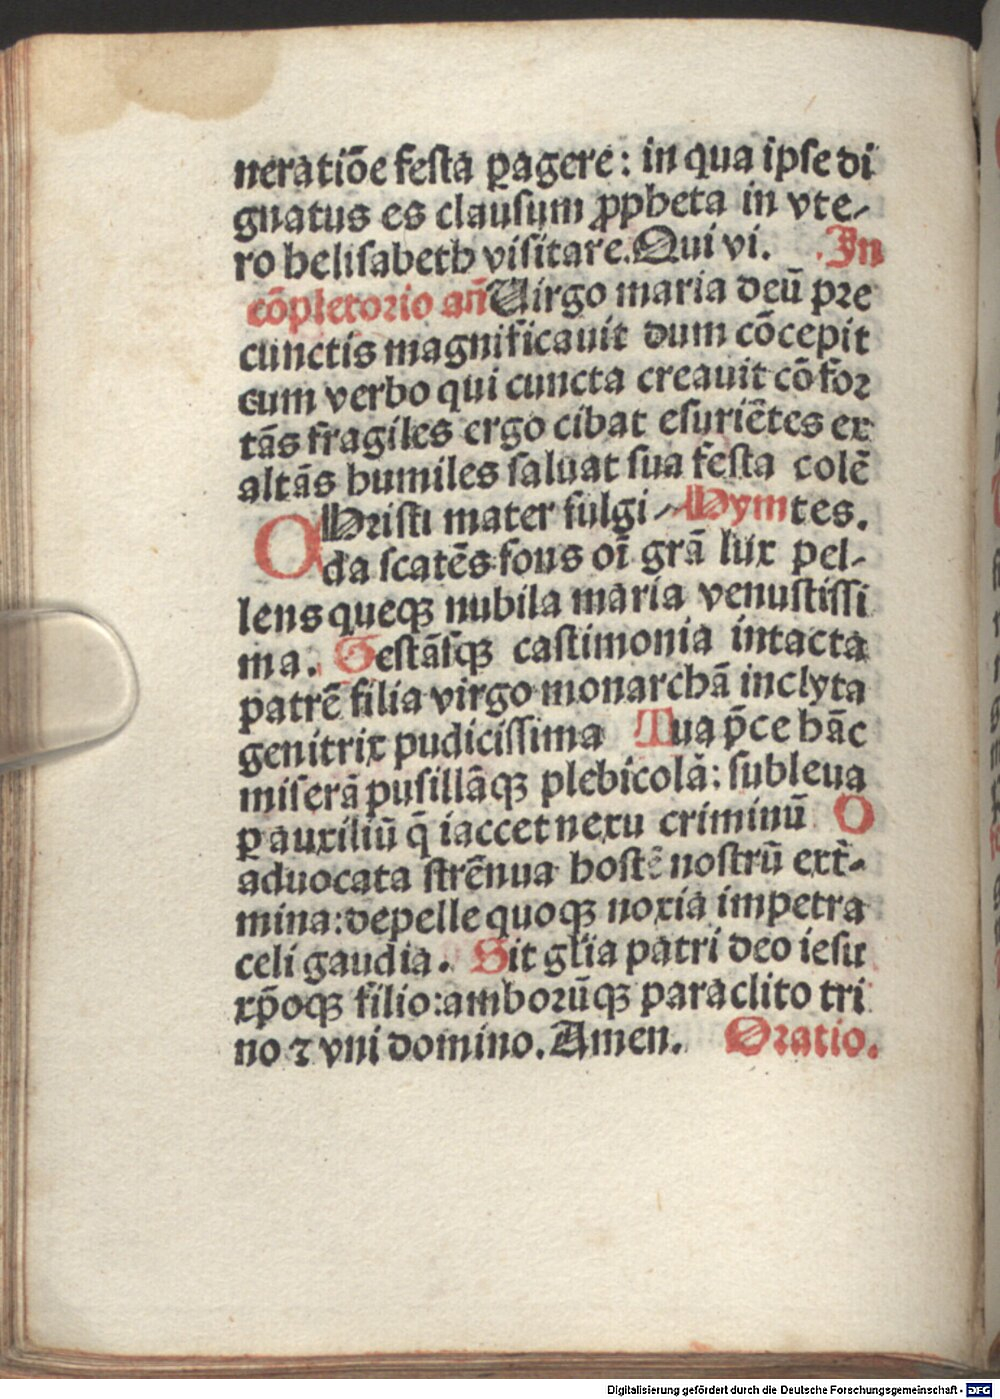 neratiōe festa ꝑagere: in qua ipse di
gnatus es clausum ꝓpheta in vte-
ro helisabeth visitare. Qui vi. In
cōpletorio añ Uirgo maria deū pre
cunctis magnificauit dum cōcepit
cum verbo qui cuncta creauit cōfor
tās fragiles ergo cibat esuriētes ex
altās humiles saluat sua festa colē
O Christi mater fulgi- Hym tes.
da scatēs fons oī grā lux pel-
lens queqꝫ nubila maria venustissi
ma. Gestāsqꝫ castimonia intacta
patrē filia virgo monarchā inclyta
genitrix pudicissima Tua p̄ce hāc
miserā pusillāqꝫ plebicolā: subleua
ꝑ auxiliū q̄ iaccet nexu criminū O
aduocata strēnua hostē nostrū exr̄-
mina: depelle quoqꝫ noxia impetra
celi gaudia. Sit gl̄ia patri deo iesu
xp̄oqꝫ filio: amborūqꝫ paraclito tri
no ⁊ vni domino. Amen. Oratio.
Digitalisierung gefördert durch die Deutsche Forschungsgemeinschaft - DFG